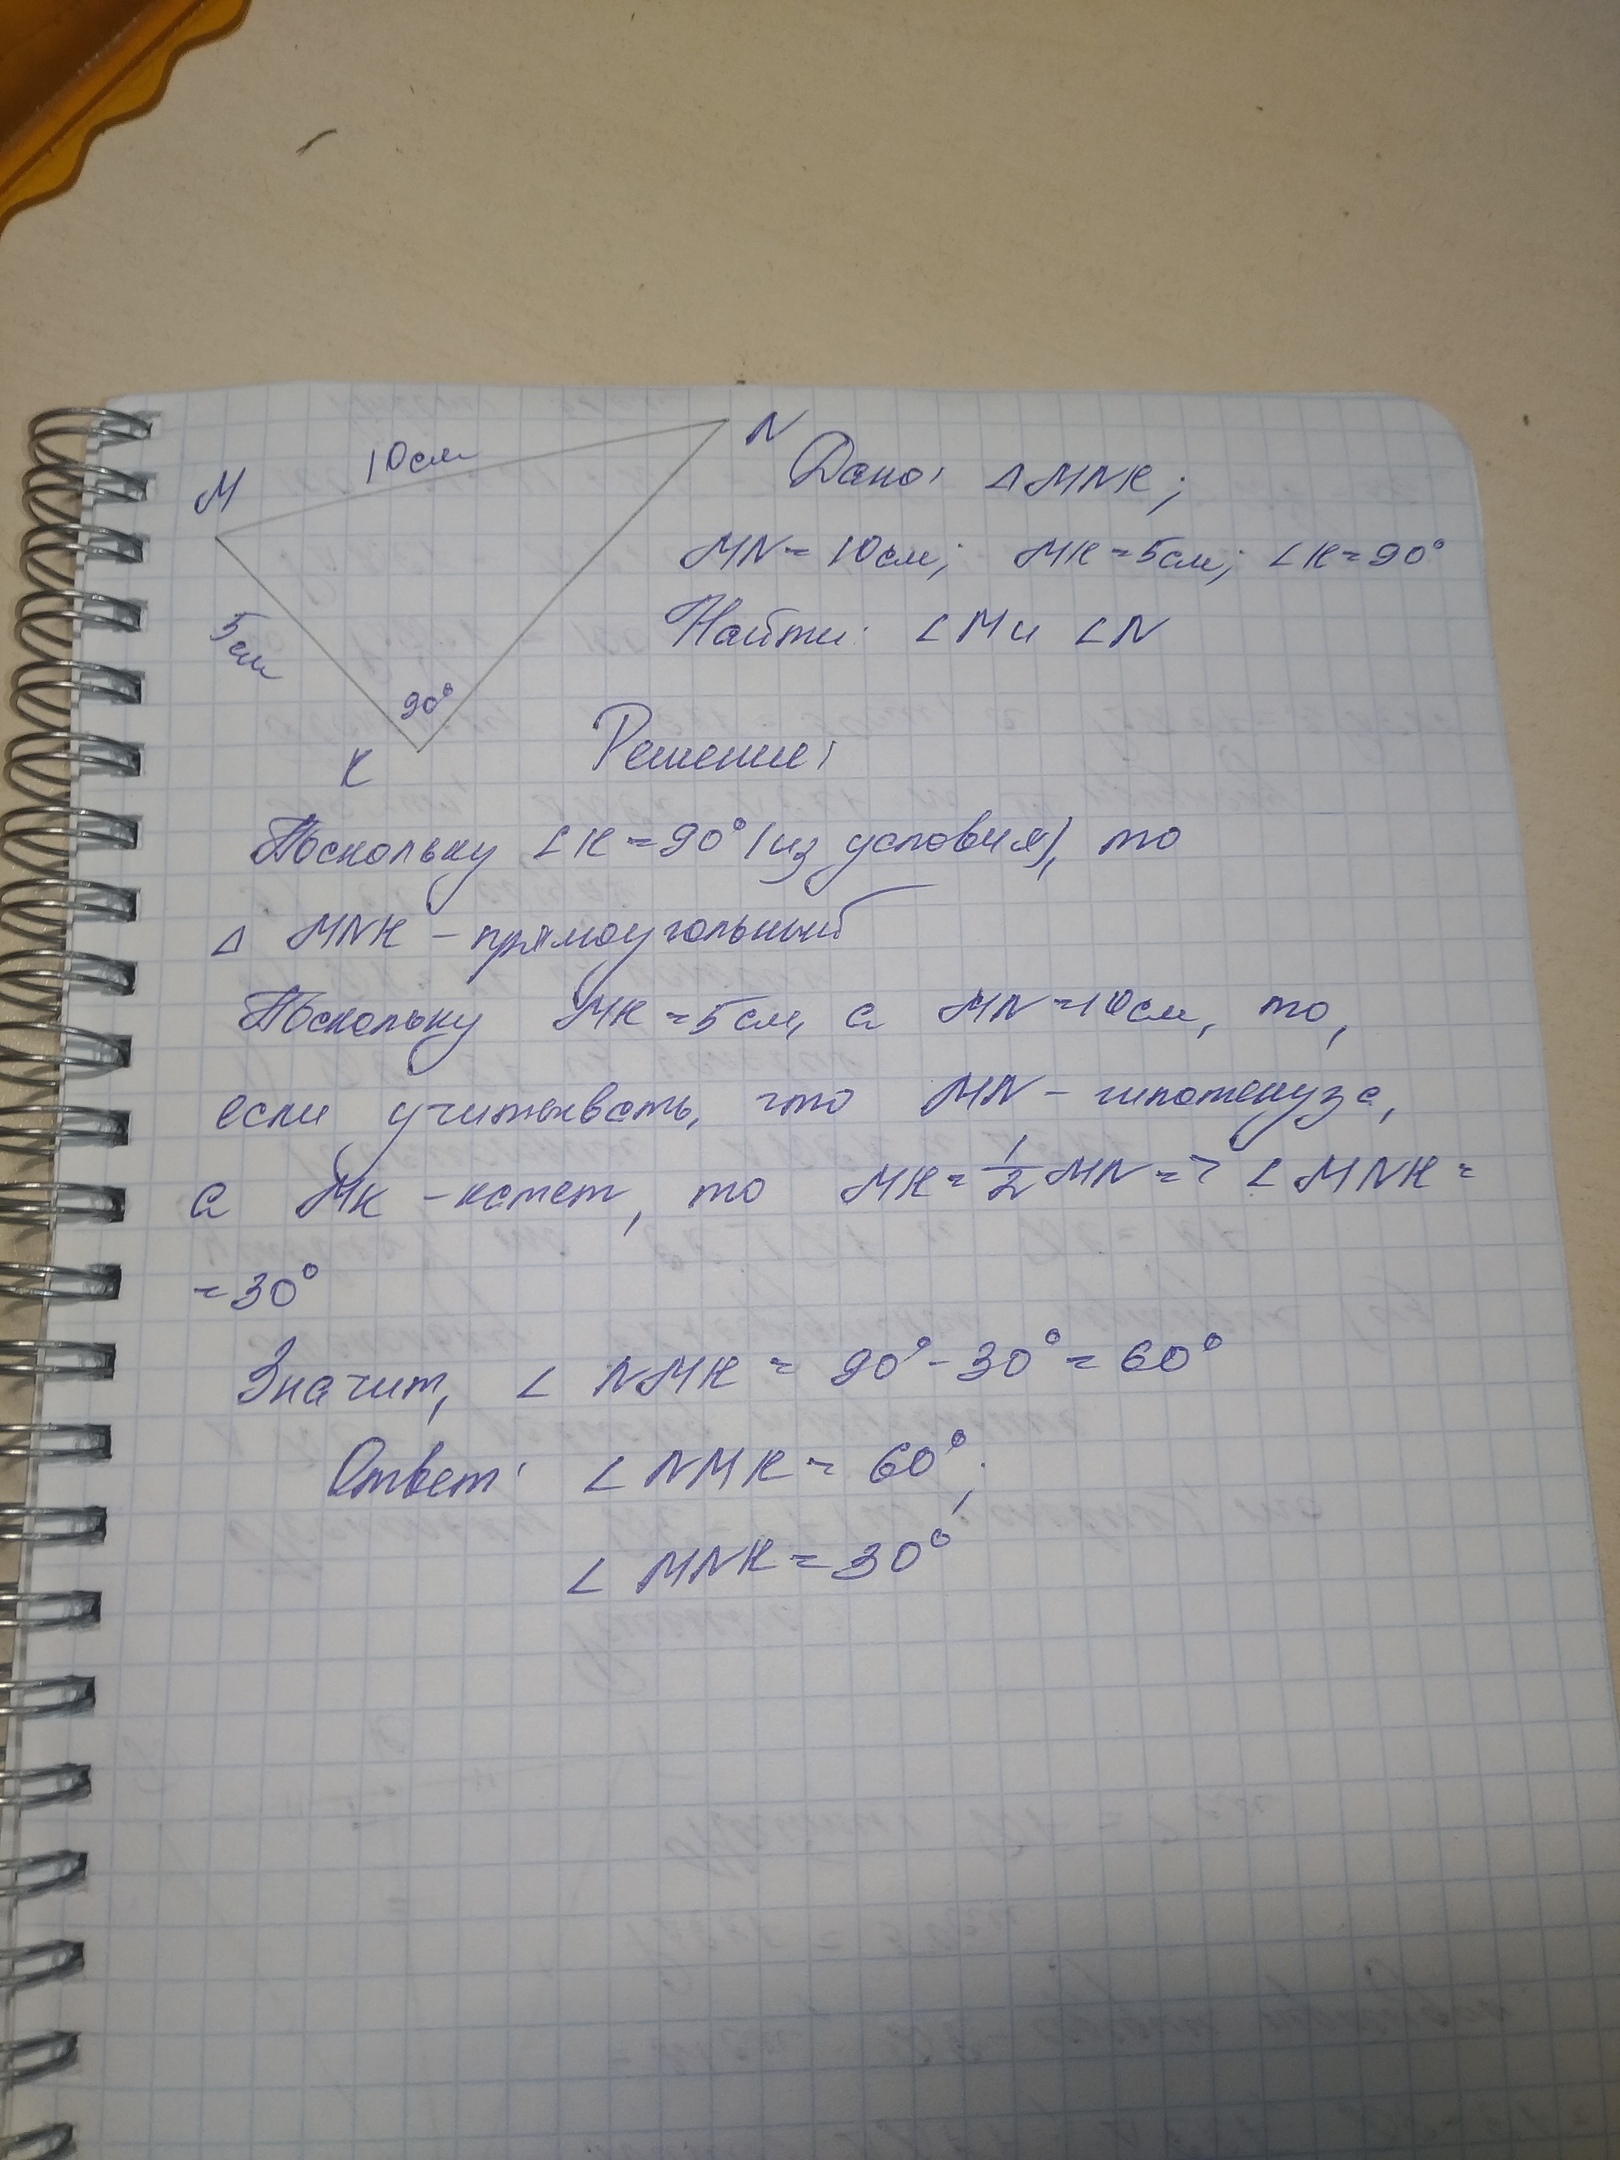 M
10см
N
5см
90°
K
Дано: △MNK;
MN=10см; MK=5см; ∠K=90°
Найти: ∠M и ∠N
Решение:
Поскольку ∠K=90° (из условия), то
△ MNK - прямоугольный
Поскольку MK=5см, а MN=10см, то,
если учитывать, что MN - гипотенуза,
а MK - катет, то MK=1/2 MN => ∠MNK=
=30°
Значит, ∠ NMK = 90°-30°=60°
Ответ: ∠NMK = 60°;
∠ MNK=30°